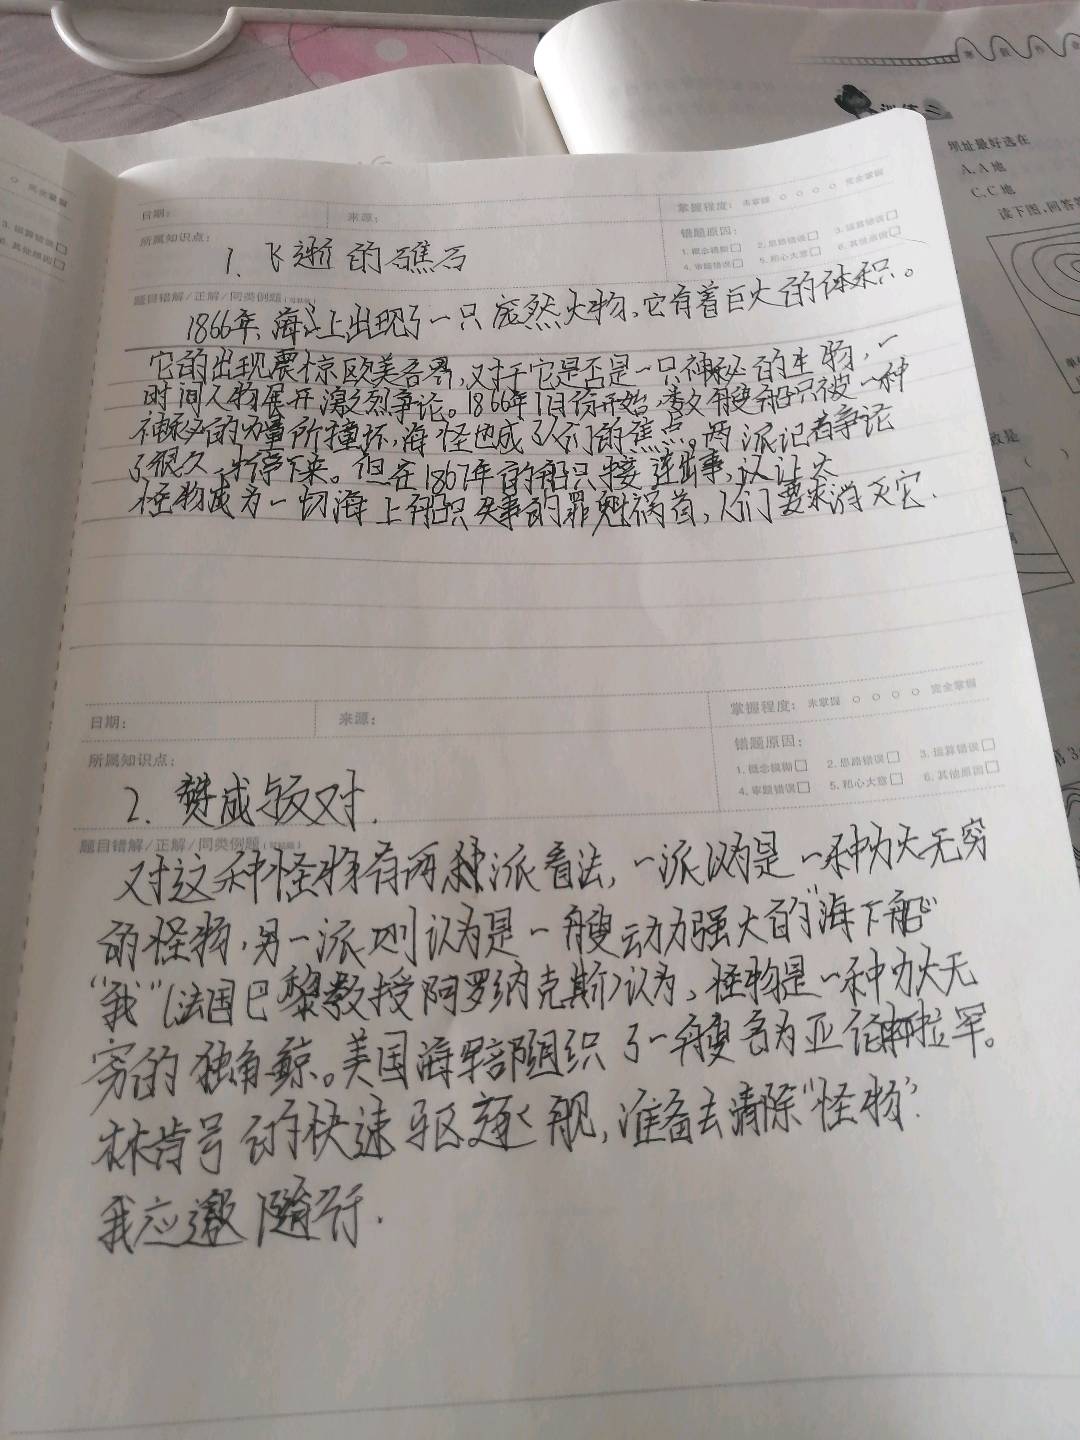 完全掌握
3. 运算错误
6. 其他原因
训练二
坝址最好选在
A. A 地
C. C 地
读下图,回答
日期:
来源:
掌握程度: 未掌握 ○ ○ ○ ○ 完全掌握
所属知识点:
错题原因:
1. 概念模糊 2. 思路错误 3. 运算错误
4. 审题错误 5. 粗心大意 6. 其他原因
1. 飞逝的礁石
题目错解/正解/同类例题
1866年,海上出现了一只庞然大物,它有着巨大的体积。
它的出现震惊欧美各界,对于它是否是一只神秘的生物,一
时间人物展开激烈争论。1866年1月份开始,数艘船只被一种
神秘的力量所撞坏,海怪也成了人们的焦点。两派记者争论
了很久,才停下来。但在1867年的船只接连出事,以让大
怪物成为一切海上船只失事的罪魁祸首,人们要求消灭它.
日期:
来源:
掌握程度: 未掌握 ○ ○ ○ ○ 完全掌握
所属知识点:
错题原因:
1. 概念模糊 2. 思路错误 3. 运算错误
4. 审题错误 5. 粗心大意 6. 其他原因
2. 赞成与反对.
题目错解/正解/同类例题
对这种怪物有两种派看法,一派认为是一种力大无穷
的怪物,另一派则认为是一艘动力强大的"海下船"
"我"(法国巴黎教授阿罗纳克斯)认为,怪物是一种力大无
穷的独角鲸。美国海军部组织了一艘名为亚伯拉罕。
林肯号的快速驱逐舰,准备去清除"怪物".
我应邀随行.